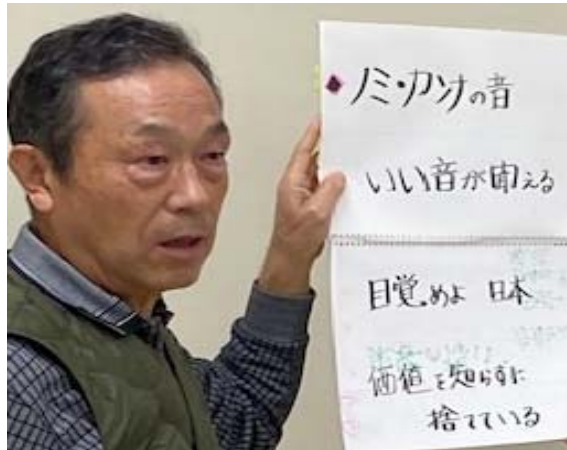 ◆ノミ・カンナの音
いい音が聞える
目覚めよ 日本
価値を知らずに
捨てている